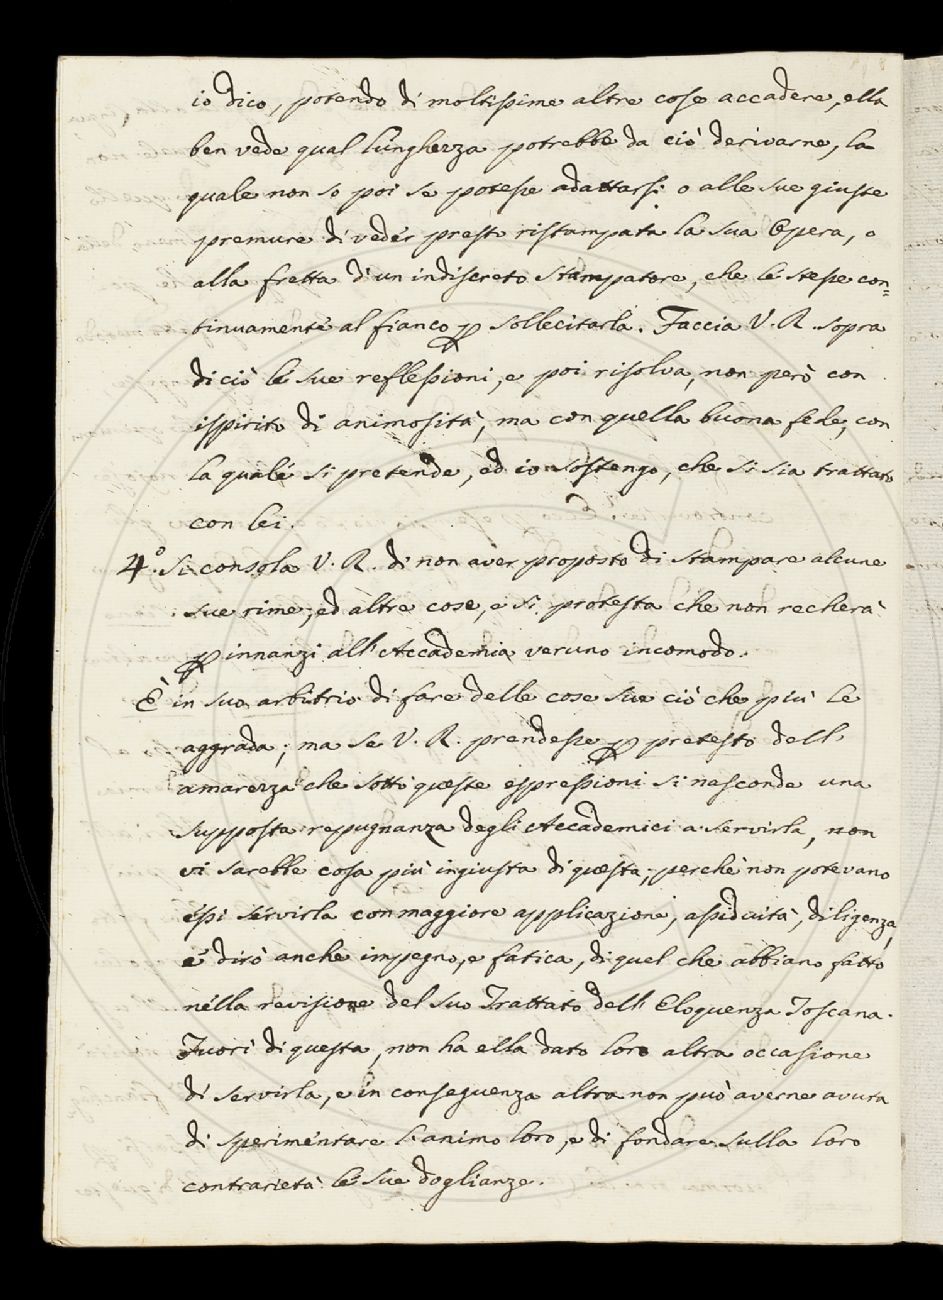 io dico, potendo di moltissime altre cose accadere, ella
ben vede qual lunghezza potrebbe da ciò derivarne, la
quale non so poi se potesse adattarsi o alle sue giuste
premure di veder presto ristampata la sua Opera, o
alla fretta d'un indiscreto stampatore, che le stesse con=
tinuamente al fianco p sollecitarla. Faccia V. R. sopra
di ciò le sue reflessioni, e poi risolva, non però con
ispirito di animosità, ma con quella buona fede, con
la quale si pretende, ed io sostengo, che si sia trattato
con lei.
4.° Si consola V. R. di non aver proposto di stampare alcune
sue rime, ed altre cose, e si protesta che non recherà
p innanzi all'Accademia veruno incomodo.
È in suo arbitrio di fare delle cose sue ciò che più le
aggrada; ma se V. R. prendesse p pretesto dell'
amarezza che sotto queste espressioni si nasconde una
supposta repugnanza degli Accademici a servirla, non
vi sarebbe cosa più ingiusta di questa; perchè non potevano
essi servirla con maggiore applicazione, assiduità, diligenza,
e dirò anche impegno, e fatica, di quel che abbiano fatto
nella revisione del suo Trattato dell'Eloquenza Toscana.
Fuori di questa, non ha ella dato loro altra occasione
di servirla, e in conseguenza altra non può averne avuta
di sperimentare l'animo loro, e di fondare sulla loro
contrarietà le sue doglianze.